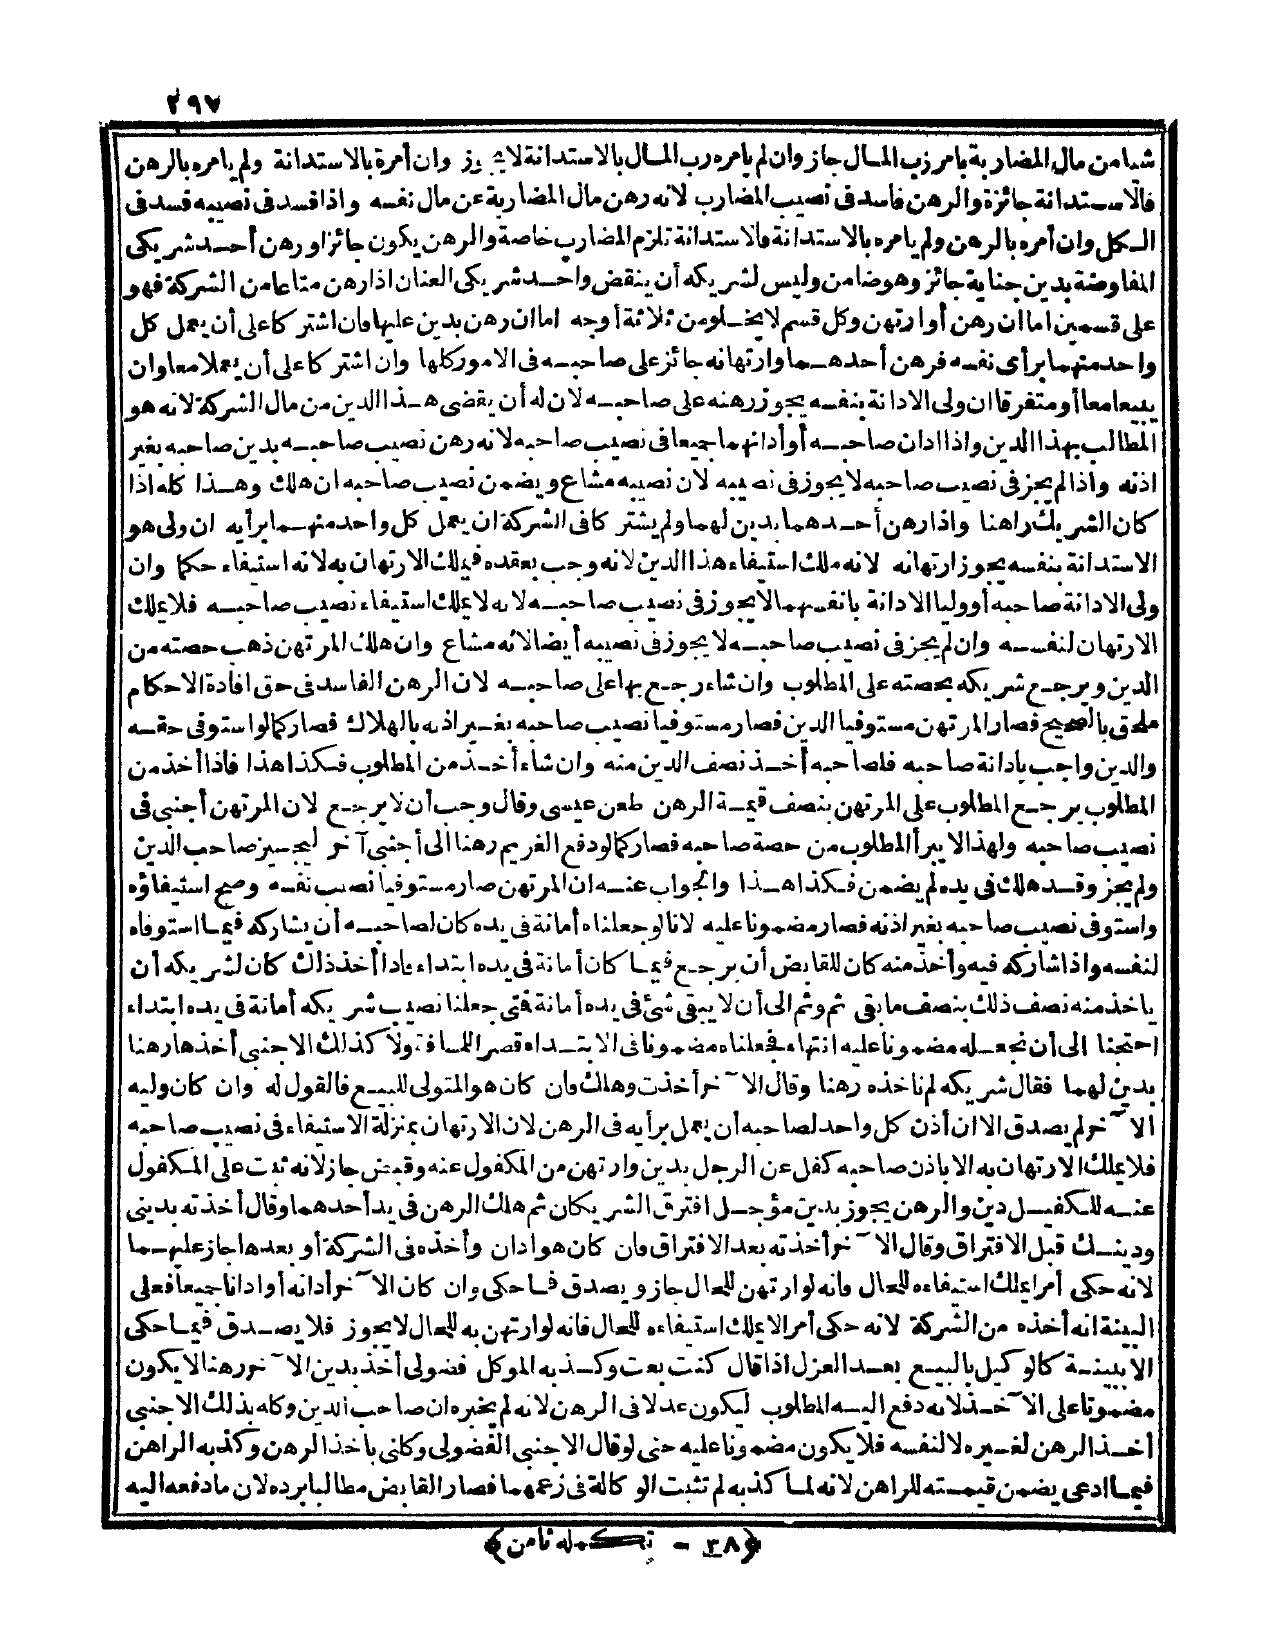 ٢٩٧
شيأ من مال المضاربة بامر رب المال جاز وان لم يامره رب المال بالاستدانة لا يجوز وان أمره بالاستدانة ولم يامره بالرهن
فالاستدانة جائزة والرهن فاسد فى نصيب المضارب لانه رهن مال المضاربة عن مال نفسه واذا فسد فى نصيبه فسد فى
الكل وان أمره بالرهن ولم يامره بالاستدانة فالاستدانة تلزم المضارب خاصة والرهن يكون جائزا ورهن أحد شريكى
المفاوضة بدين جناية جائز وهو ضامن وليس لشريكه أن ينقض واحد شريكى العنان اذا رهن متاعا من الشركة فهو
على قسمين اما ان رهن أو ارتهن وكل قسم لا يخلو من ثلاثة أوجه اما ان رهن بدين عليها فان اشتركا على أن يعمل كل
واحد منهما برأى نفسه فرهن أحدهما وارتهانه جائز على صاحبه فى الامور كلها وان اشتركا على أن يعملا معا وان
يبيعا معا أو متفرقا ان ولى الادانة بنفسه يجوز رهنه على صاحبه لان له أن يقضى هذا الدين من مال الشركة لانه هو
المطالب بهذا الدين واذا ادان صاحبه أو أدانهما جميعا فى نصيب صاحبه لانه رهن نصيب صاحبه بدين صاحبه بغير
اذنه واذا لم يجز فى نصيب صاحبه لا يجوز فى نصيبه لان نصيبه مشاع ويضمن نصيب صاحبه ان هلك وهذا كله اذا
كان الشريك راهنا واذا رهن أحدهما بدين لهما ولم يشتركا فى الشركة ان يعمل كل واحد منهما برأيه ان ولى هو
الاستدانة بنفسه يجوز ارتهانه لانه ملك استيفاء هذا الدين لانه وجب بعقده فيملك الارتهان به لانه استيفاء حكما وان
ولى الادانة صاحبه أو وليا الادانة بانفسهما لا يجوز فى نصيب صاحبه لانه لا يملك استيفاء نصيب صاحبه فلا يملك
الارتهان لنفسه وان لم يجز فى نصيب صاحبه لا يجوز فى نصيبه أيضا لانه مشاع وان هلك المرتهن ذهب حصته من
الدين ويرجع شريكه بحصته على المطلوب وان شاء رجع بها على صاحبه لان الرهن الفاسد فى حق افادة الاحكام
ملحق بالصحيح فصار المرتهن مستوفيا الدين فصار مستوفيا نصيب صاحبه بغير اذنه بالهلاك فصار كما لو استوفى حقه
والدين واجب بادانة صاحبه فلصاحبه أخذ نصف الدين منه وان شاء أخذ من المطلوب فكذا هذا فاذا أخذ من
المطلوب يرجع المطلوب على المرتهن بنصف قيمة الرهن طعن عيسى وقال وجب أن لا يرجع لان المرتهن أجنبى فى
نصيب صاحبه ولهذا لا يبرأ المطلوب من حصة صاحبه فصار كما لو دفع الغريم رهنا الى أجنبى آخر ليجيز صاحب الدين
ولم يجز وقد هلك فى يده لم يضمن فكذا هذا والجواب عنه ان المرتهن صار مستوفيا نصيب نفسه وصح استيفاؤه
واستوفى نصيب صاحبه بغير اذنه فصار مضمونا عليه لانا لو جعلناه أمانة فى يده كان لصاحبه أن يشاركه فيما استوفاه
لنفسه واذا شاركه فيه وأخذ منه كان للقابض أن يرجع فيما كان أمانة فى يده ابتداء فاذا أخذ ذلك كان لشريكه أن
ياخذ منه نصف ذلك بنصف مابقى ثم وثم الى أن لا يبقى شئ فى يده أمانة فمتى جعلنا نصيب شريكه أمانة فى يده ابتداء
احتجنا الى أن نجعله مضمونا عليه انتهاء فجعلناه مضمونا فى الابتداء قصر اللمسافة ولا كذلك الاجنبى أخذها رهنا
بدين لهما فقال شريكه لم ناخذه رهنا وقال الآخر أخذت وهلك فان كان هو المتولى للبيع فالقول له وان كان وليه
الآخر لم يصدق الا ان أذن كل واحد لصاحبه أن يعمل برأيه فى الرهن لان الارتهان بمنزلة الاستيفاء فى نصيب صاحبه
فلا يملك الارتهان به الا باذن صاحبه كفل عن الرجل بدين وارتهن من المكفول عنه وقبض جاز لانه ثبت على المكفول
عنه للكفيل دين والرهن يجوز بدين مؤجل افترق الشريكان ثم هلك الرهن فى يد أحدهما وقال أخذته بدينى
ودينك قبل الافتراق وقال الآخر أخذته بعد الافتراق فان كان هو ادان وأخذه فى الشركة أو بعدها جاز عليهما
لانه حكى أمرا يملك استيفاءه للحال فانه لو ارتهن للحال جاز ويصدق فيما حكى وان كان الآخر أدانه أو ادانا جميعا فعلى
البينة انه أخذه من الشركة لانه حكى أمرا لا يملك استيفاءه للحال فانه لو ارتهن به للحال لا يجوز فلا يصدق فيما حكى
الا ببينة كالوكيل بالبيع بعد العزل اذا قال كنت بعت وكذبه الموكل فضولى أخذ بدين الآخر رهنا لا يكون
مضمونا على الآخذ لانه دفع اليه المطلوب ليكون عدلا فى الرهن لانه لم يخبره ان صاحب الدين وكله بذلك الاجنبى
أخذ الرهن لغيره لا لنفسه فلا يكون مضمونا عليه حتى لو قال الاجنبى الفضولى وكلنى باخذ الرهن وكذبه الراهن
فيما ادعى يضمن قيمته للراهن لانه لما كذبه لم تثبت الوكالة فى زعمهما فصار القابض مطالبا برده لان ما دفعه اليه
﴿٣٨ - تكمله ثامن﴾